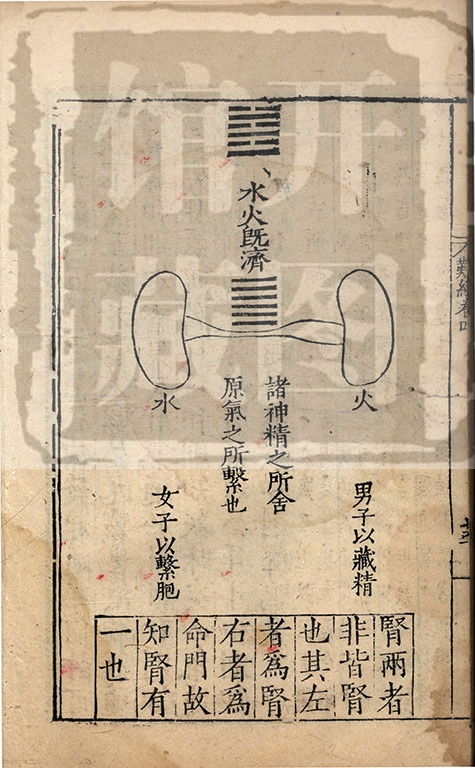 水火既濟
火
水
諸神精之所舍
原氣之所繫也
男子以藏精
女子以繫胞
腎兩者
非皆腎
也其左
者爲腎
右者爲
命門故
知腎有
一也
开图
馆藏